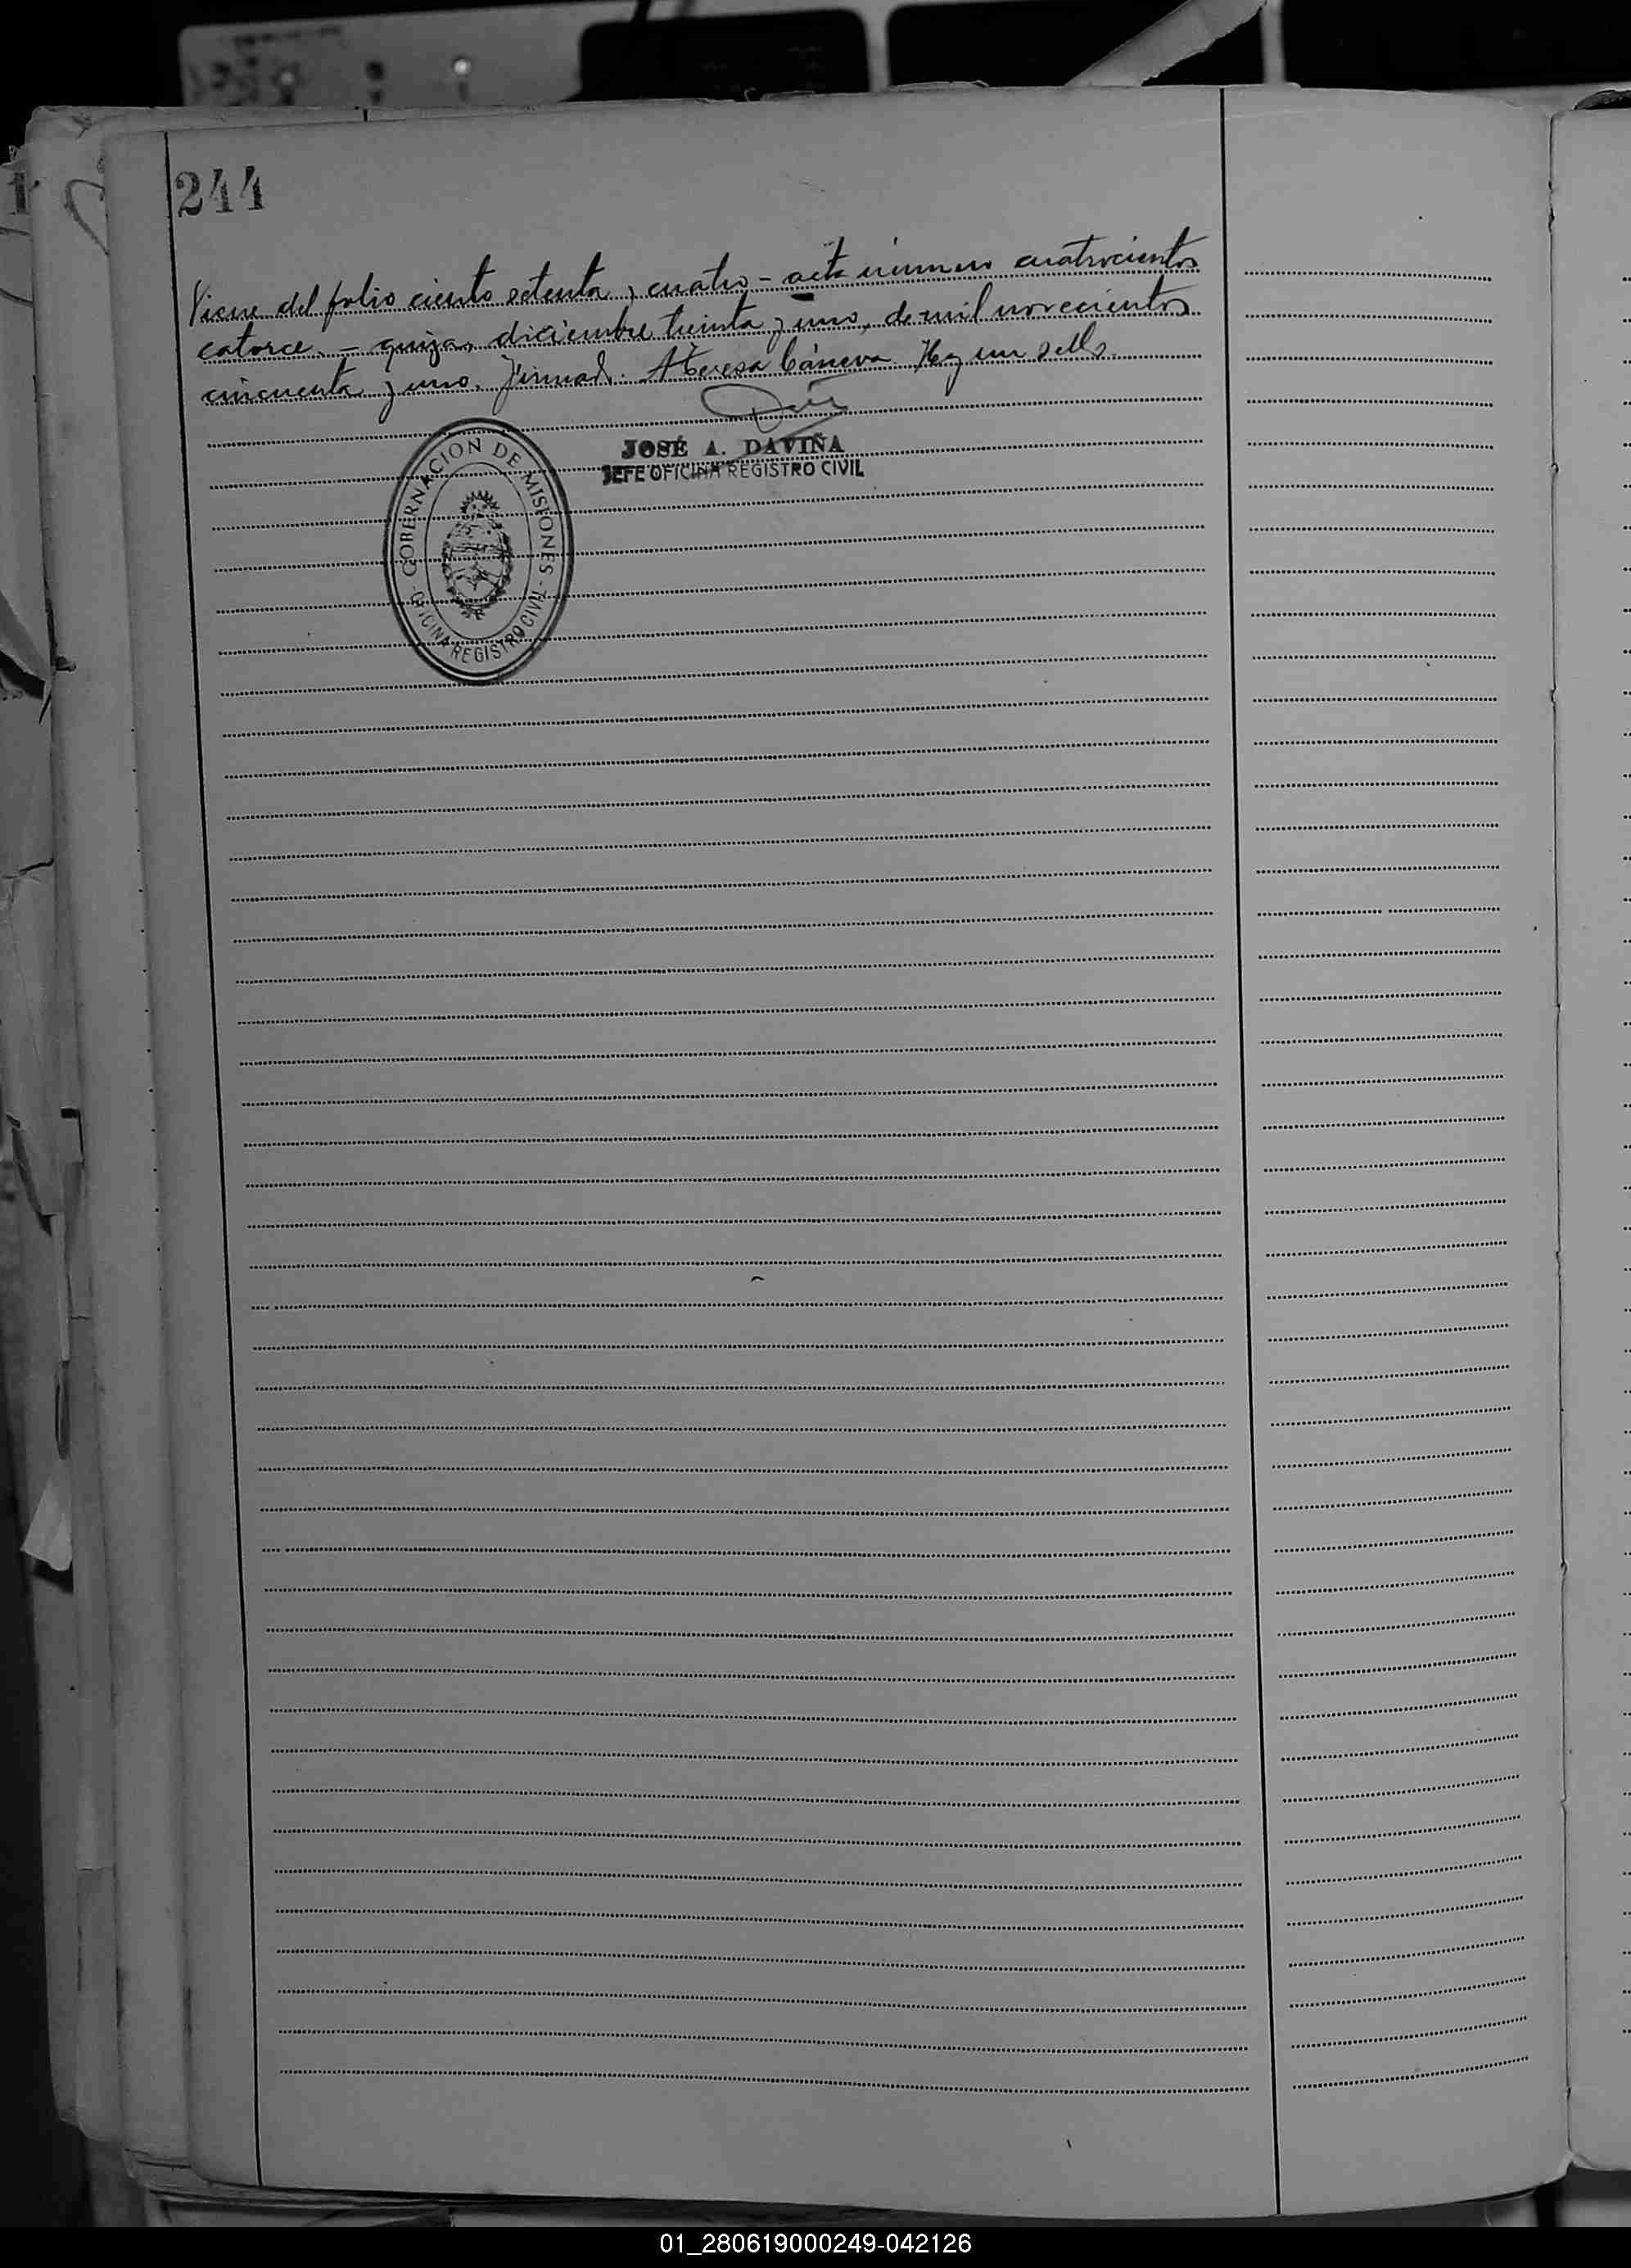 244
Viene del folio ciento setenta y cuatro - acta número cuatrocientos
catorce. - diciembre treinta y uno, de mil novecientos
cincuenta y uno. Firmad. A Teresa Cáneva Hay un sello.
JOSÉ A. DAVIÑA
JEFE OFICINA REGISTRO CIVIL
GOBERNACION DE MISIONES -
OFICINA REGISTRO CIVIL -
01_280619000249-042126